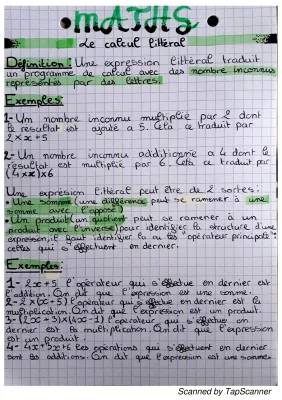 MATHS
Le calcul littéral
Définition : Une expression littéral traduit
un programme de calcul avec des nombre inconnus
représentés par des lettres.
Exemples
1- Un nombre inconnu multiplié par 2 dont
le resultat est ajouté a 5. Cela ce traduit par
2 x x + 5
2- Un nombre inconnu additionné a 4 dont le
resultat est multiplié par 6. Cela ce traduit par
(4 + x) x 6
Une expression littéral peut être de 2 sortes :
• Une somme (une différence peut se ramener à une
somme avec l'opposé)
• Un produit (un quotient peut se ramener à un
produit avec l'inverse) pour identifier la structure d'une
expression, il faut identifier la ou les "opérateur principale":
celles qui s'effectuent en dernier.
Exemples
1- 2x + 5 l'operateur qui s'effectue en dernier est
l'addition. On dit que l'expression est une somme.
2- 2 x (x + 5) l'opérateur qui s'effectue en dernier est la
multiplication. On dit que l'expression est un produit.
3- (2x + 3) x (4x - 1) l'operateur qui s'effectue en
dernier est la multiplication. On dit que l'expression
est un produit.
4- 4x + 5x + 6 les operations qui s'effectuent en dernier
sont les additions. On dit que l'expression est une somme.
Scanned by TapScanner